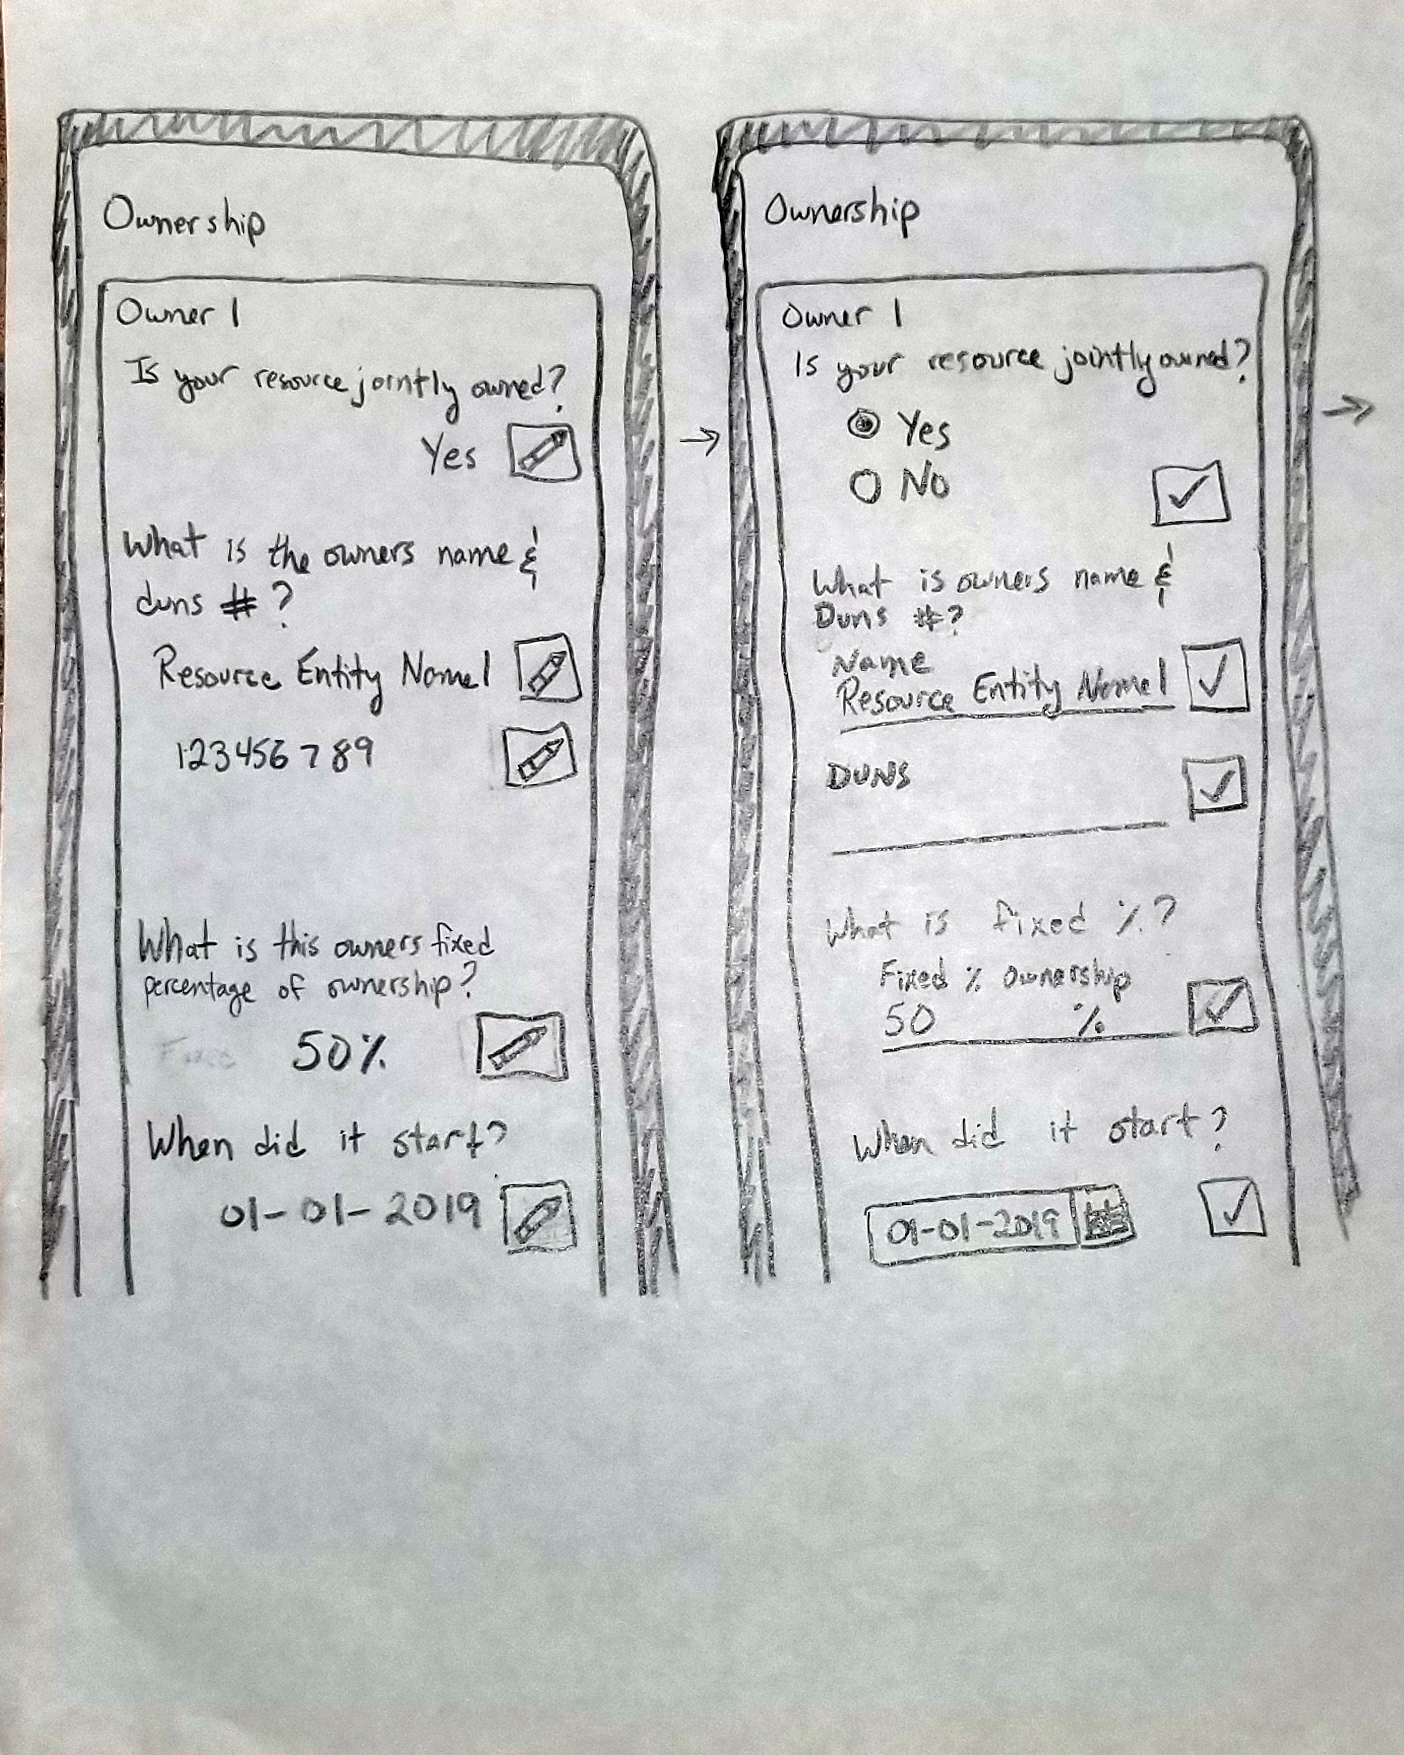 Ownership
Owner 1
Is your resource jointly owned?
Yes
What is the owners name &
duns # ?
Resource Entity Name 1
123456789
What is this owners fixed
percentage of ownership?
Fixed
50%
When did it start?
01-01-2019
Ownership
Owner 1
Is your resource jointly owned?
Yes
No
What is owners name &
Duns #?
Name
Resource Entity Name 1
DUNS
What is fixed %?
Fixed % Ownership
50 %
When did it start?
01-01-2019